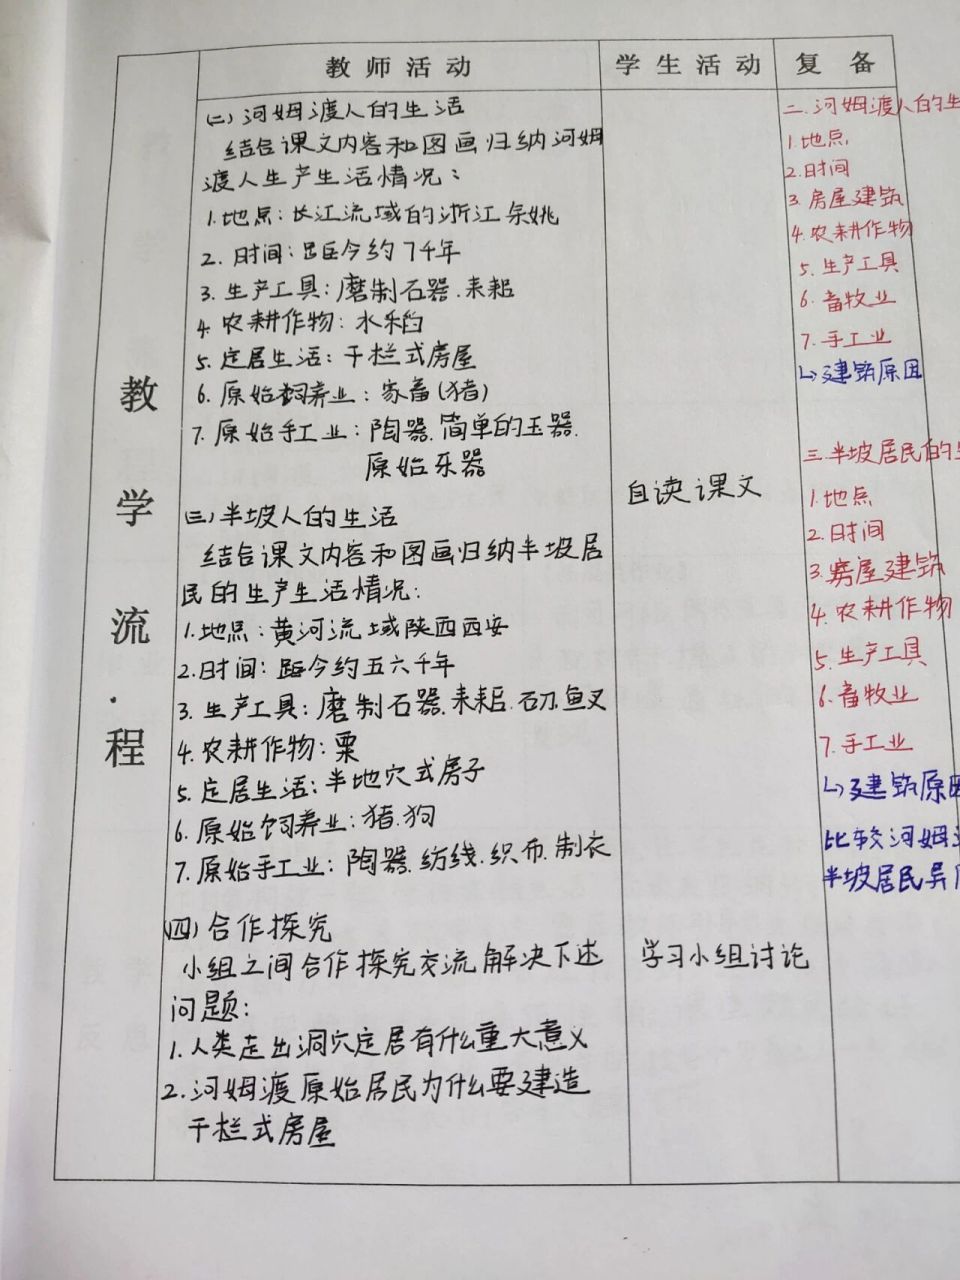 教师活动
学生活动
复备
教学流程
(二)河姆渡人的生活
结合课文内容和图画归纳河姆
渡人生产生活情况:
1.地点:长江流域的浙江余姚
2.时间:距今约7千年
3.生产工具:磨制石器.耒耜
4.农耕作物:水稻
5.定居生活:干栏式房屋
6.原始饲养业:家畜(猪)
7.原始手工业:陶器.简单的玉器.
原始乐器
(三)半坡人的生活
结合课文内容和图画归纳半坡居
民的生产生活情况:
1.地点:黄河流域陕西西安
2.时间:距今约五六千年
3.生产工具:磨制石器.耒耜.石刀.鱼叉
4.农耕作物:粟
5.定居生活:半地穴式房子
6.原始饲养业:猪.狗
7.原始手工业:陶器.纺线.织布.制衣
(四)合作探究
小组之间合作探究交流解决下述
问题:
1.人类走出洞穴定居有什么重大意义
2.河姆渡原始居民为什么要建造
干栏式房屋
自读课文
学习小组讨论
二.河姆渡人的生
1.地点
2.时间
3.房屋建筑
4.农耕作物
5.生产工具
6.畜牧业
7.手工业
↳建筑原因
三.半坡居民的生
1.地点
2.时间
3.房屋建筑
4.农耕作物
5.生产工具
6.畜牧业
7.手工业
↳建筑原因
比较河姆
半坡居民异